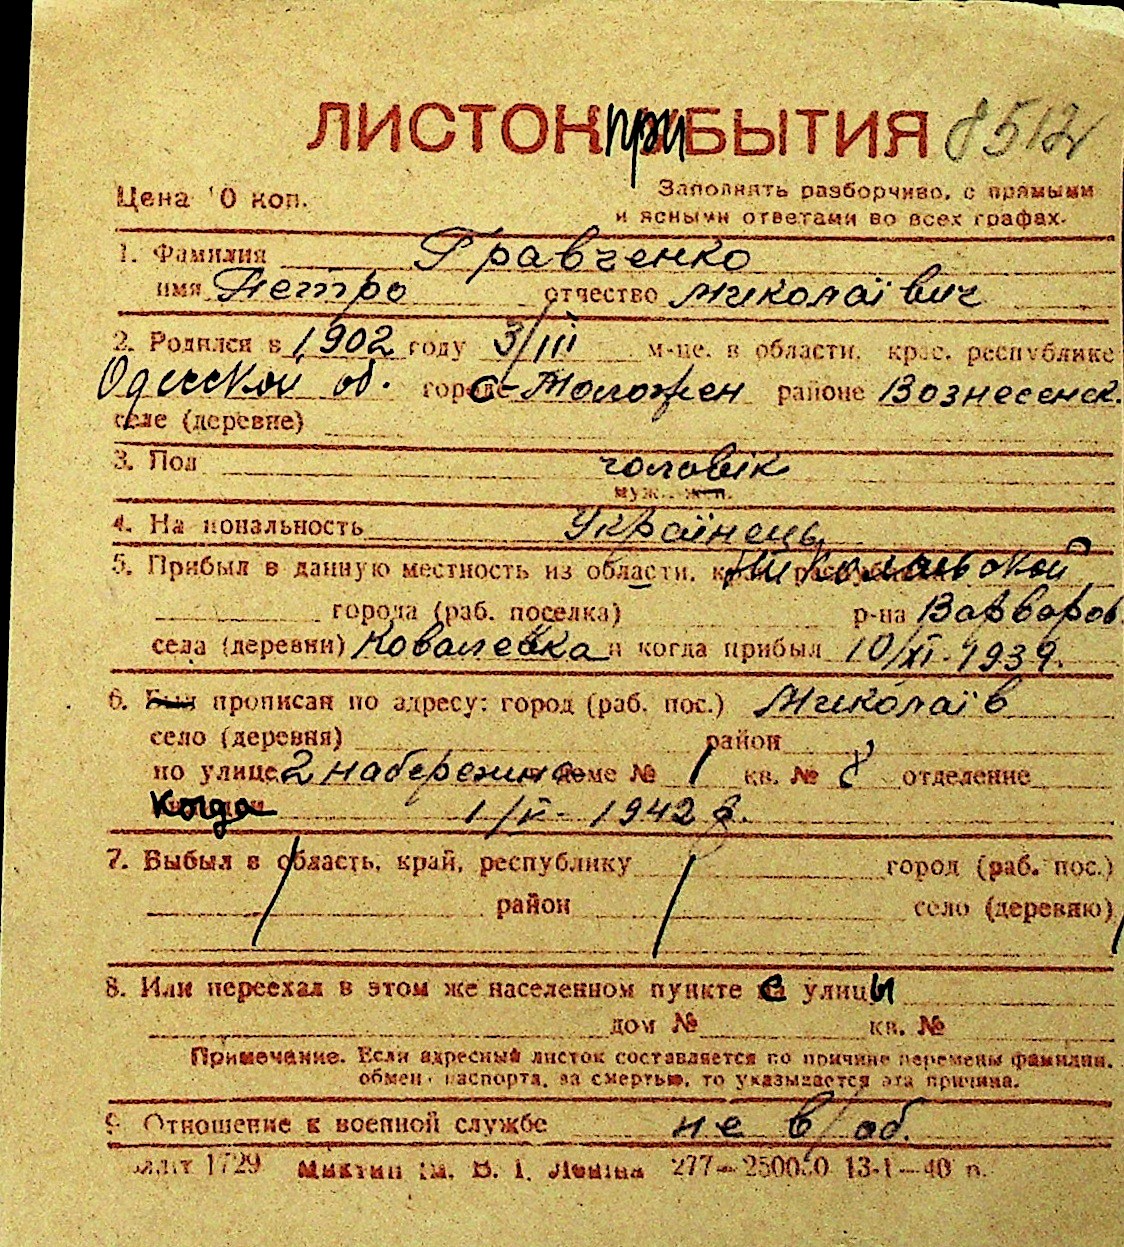 ЛИСТОКприБЫТИЯ 8512
Цена 10 коп. Заполнять разборчиво, с прямыми
и ясными ответами во всех графах.
1. Фамилия Гравченко
имя Петро отчество Миколаївич
2. Родился в 1902 году 3/III м-це, в области, крае, республике
Одесской об. городе с-Моложен районе Вознесенск.
селе (деревне)
3. Пол чоловік
муж. жен.
4. Национальность Українець
5. Прибыл в данную местность из области, края, Николаевской
города (раб. поселка) р-на Варваров.
села (деревни) Ковалевка и когда прибыл 10/XI-1939.
6. Был прописан по адресу: город (раб. пос.) Миколаїв
село (деревня) район
по улице 2 набережна доме № 1 кв. № 8 отделение
Когда 1/V-1942 г.
7. Выбыл в область, край, республику город (раб. пос.)
район село (деревню)
8. Или переехал в этом же населенном пункте с улицы
дом № кв. №
Примечание. Если адресный листок составляется по причине перемены фамилии,
обмен паспорта, за смертью, то указывается эта причина.
9. Отношение к военной службе не в/об.
1729 Миктип ім. В. І. Леніна 277—250000 13-I—40 р.